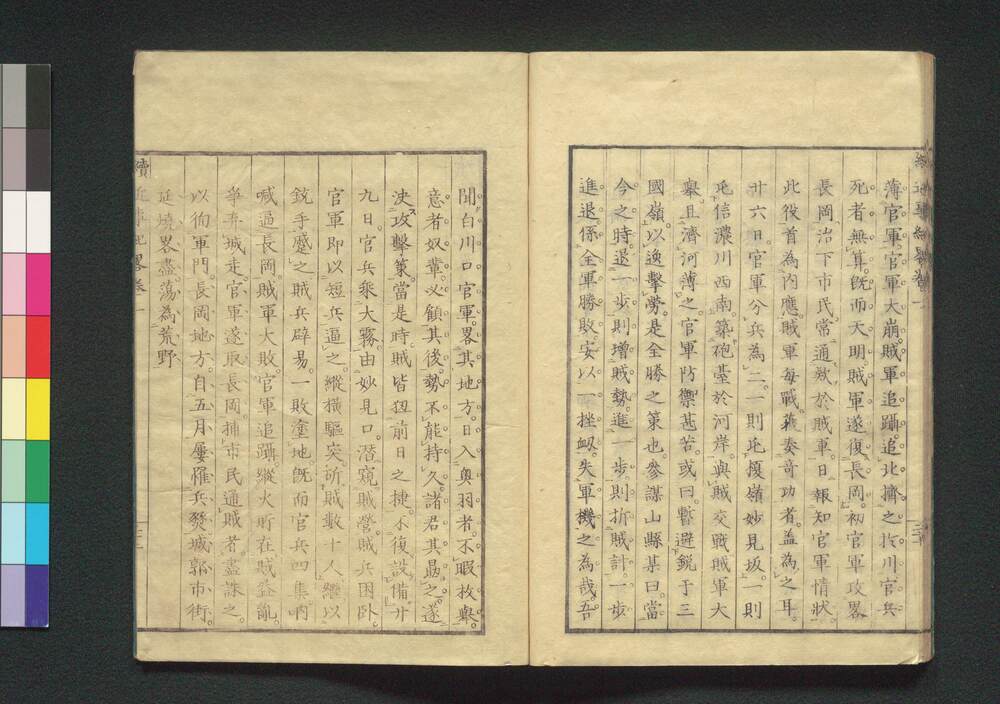 薄官軍官軍大崩賊軍追躡追北擠之於川官兵
死者無算既而天明賊軍遂復長岡初官軍攻畧
長岡治下市民常通欵於賊軍日報知官軍情狀
此役首為内應賊軍每戰能奏奇功者蓋為之耳
廿六日官軍分兵為二一則屯榎嶺妙見坂一則
屯信濃川西南築砲䑓於河岸與賊交戰賊軍大
擧且濟河薄之官軍防禦甚苦或曰暫避銳于三
國嶺以逸擊勞是全勝之策也參謀山縣某曰當
今之時退一步則增賊勢進一步則折賊計一步
進退係全軍勝敗安以一挫衂失軍機之為哉吾
聞白川口官軍畧其地方日入奥羽者不暇枚擧
意者奴輩必顧其後勢不能持久諸君其勗之遂
决攻擊策當是時賊皆狃前日之捷不復設備廾
九日官兵乘大霧由妙見口潜窺賊營賊兵困卧
官軍即以短兵逼之縱橫驅突斫賊數十人繼以
銃手蹙之賊兵辟易一敗塗地既而官兵四集吶
喊逼長岡賊軍大敗官軍追躡縱火所在賊益亂
爭弃城走官軍遂取長岡捕市民通賊者盡誅之
以徇軍門長岡地方自五月屢罹兵燹城郭市街
延燒畧盡蕩為荒野
續近事紀畧卷一